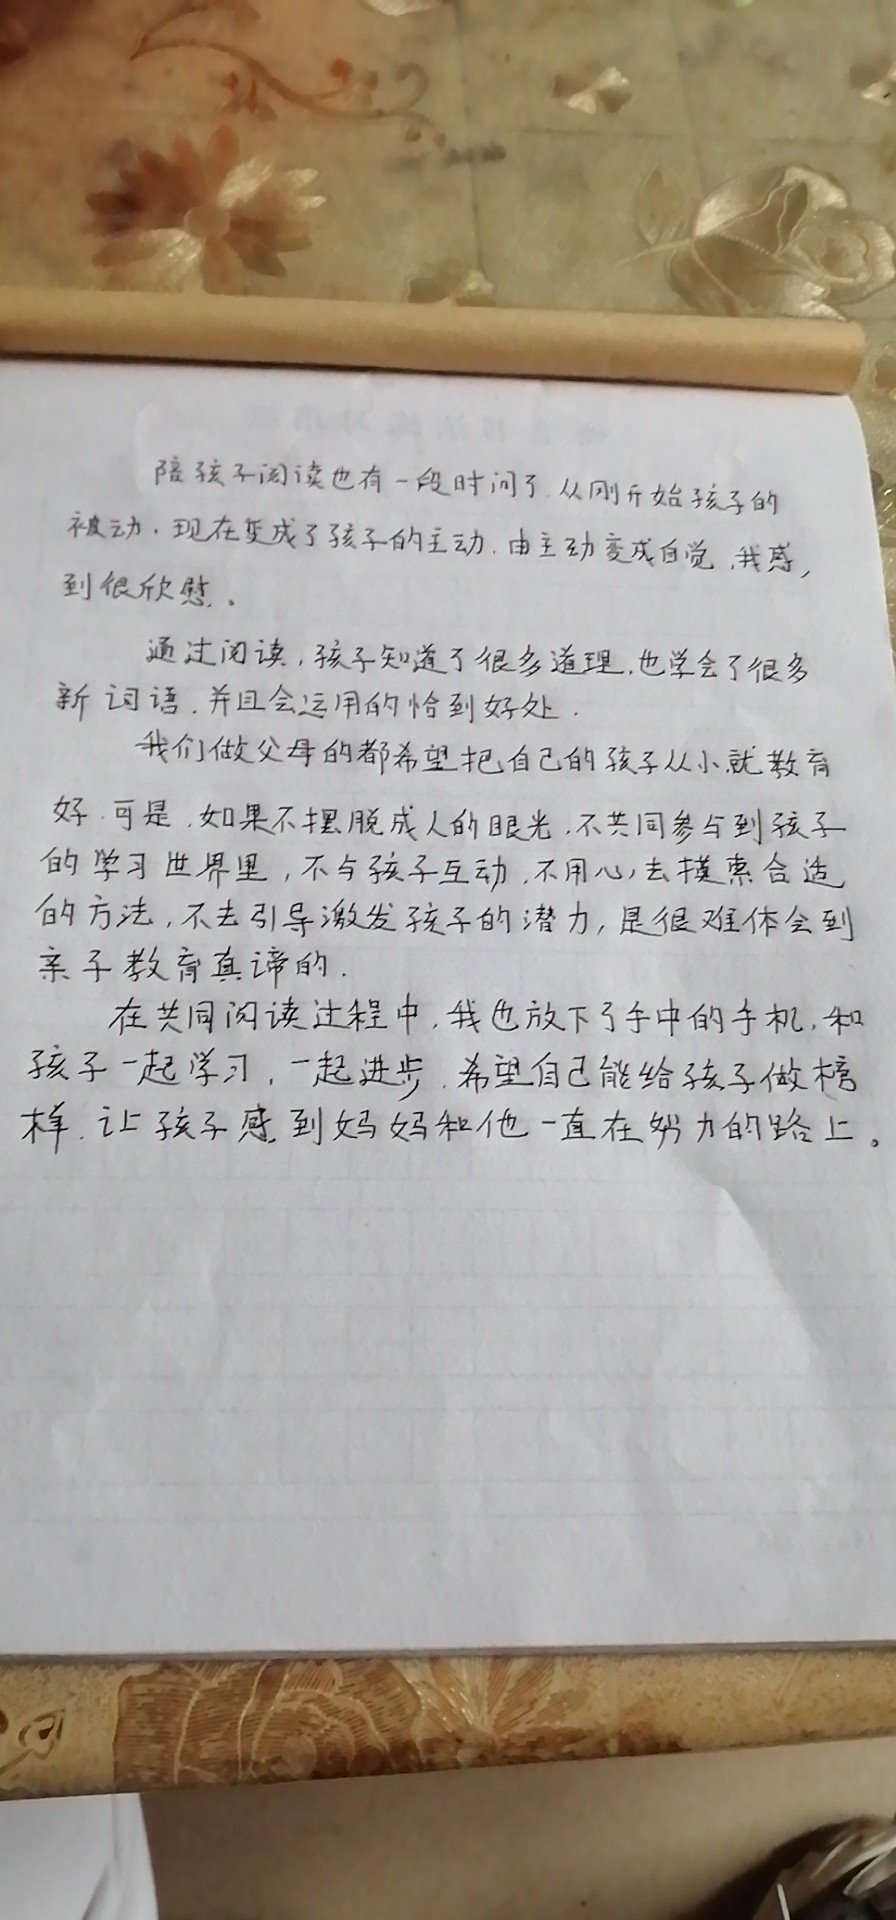 陪孩子阅读也有一段时间了.从刚开始孩子的
被动,现在变成了孩子的主动.由主动变成自觉,我感
到很欣慰。
通过阅读,孩子知道了很多道理,也学会了很多
新词语.并且会运用的恰到好处.
我们做父母的都希望把自己的孩子从小就教育
好.可是,如果不摆脱成人的眼光,不共同参与到孩子
的学习世界里,不与孩子互动,不用心去摸索合适
的方法,不去引导激发孩子的潜力,是很难体会到
亲子教育真谛的.
在共同阅读过程中,我也放下了手中的手机,和
孩子一起学习,一起进步.希望自己能给孩子做榜
样.让孩子感到妈妈和他一直在努力的路上。